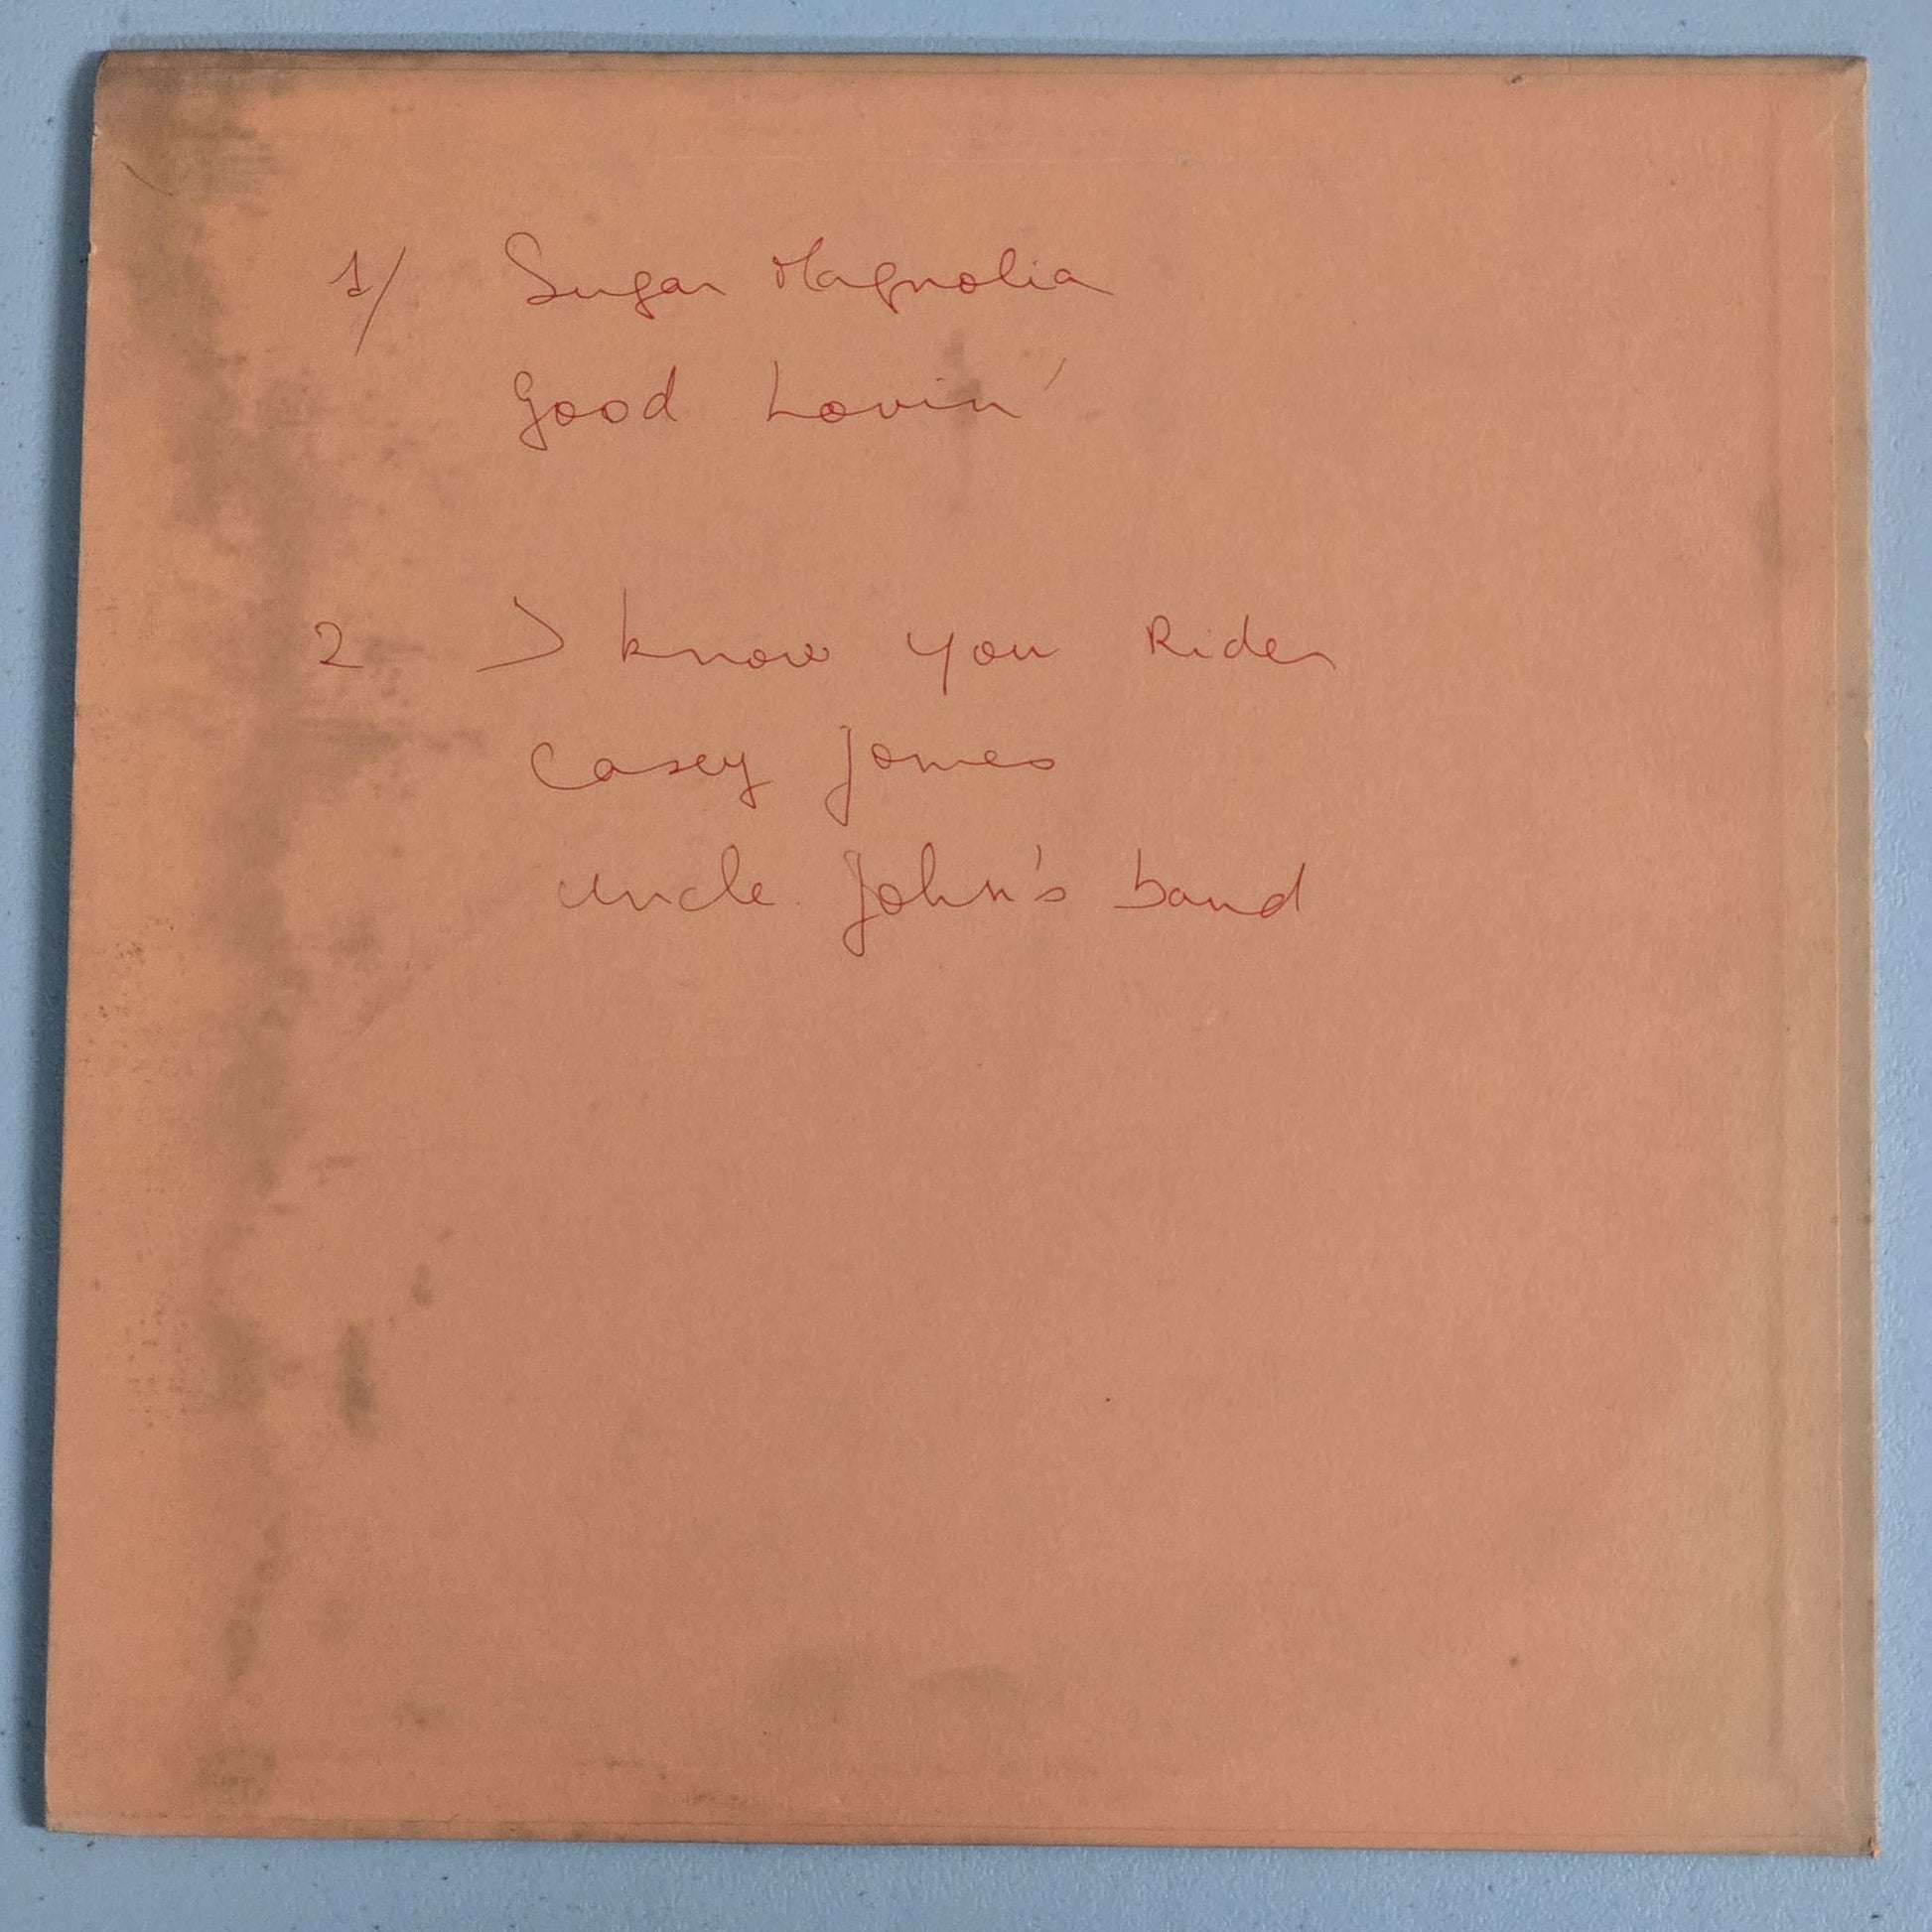 1/ Sugar Magnolia
Good Lovin'
2 I know you Rider
Casey Jones
Uncle John's band